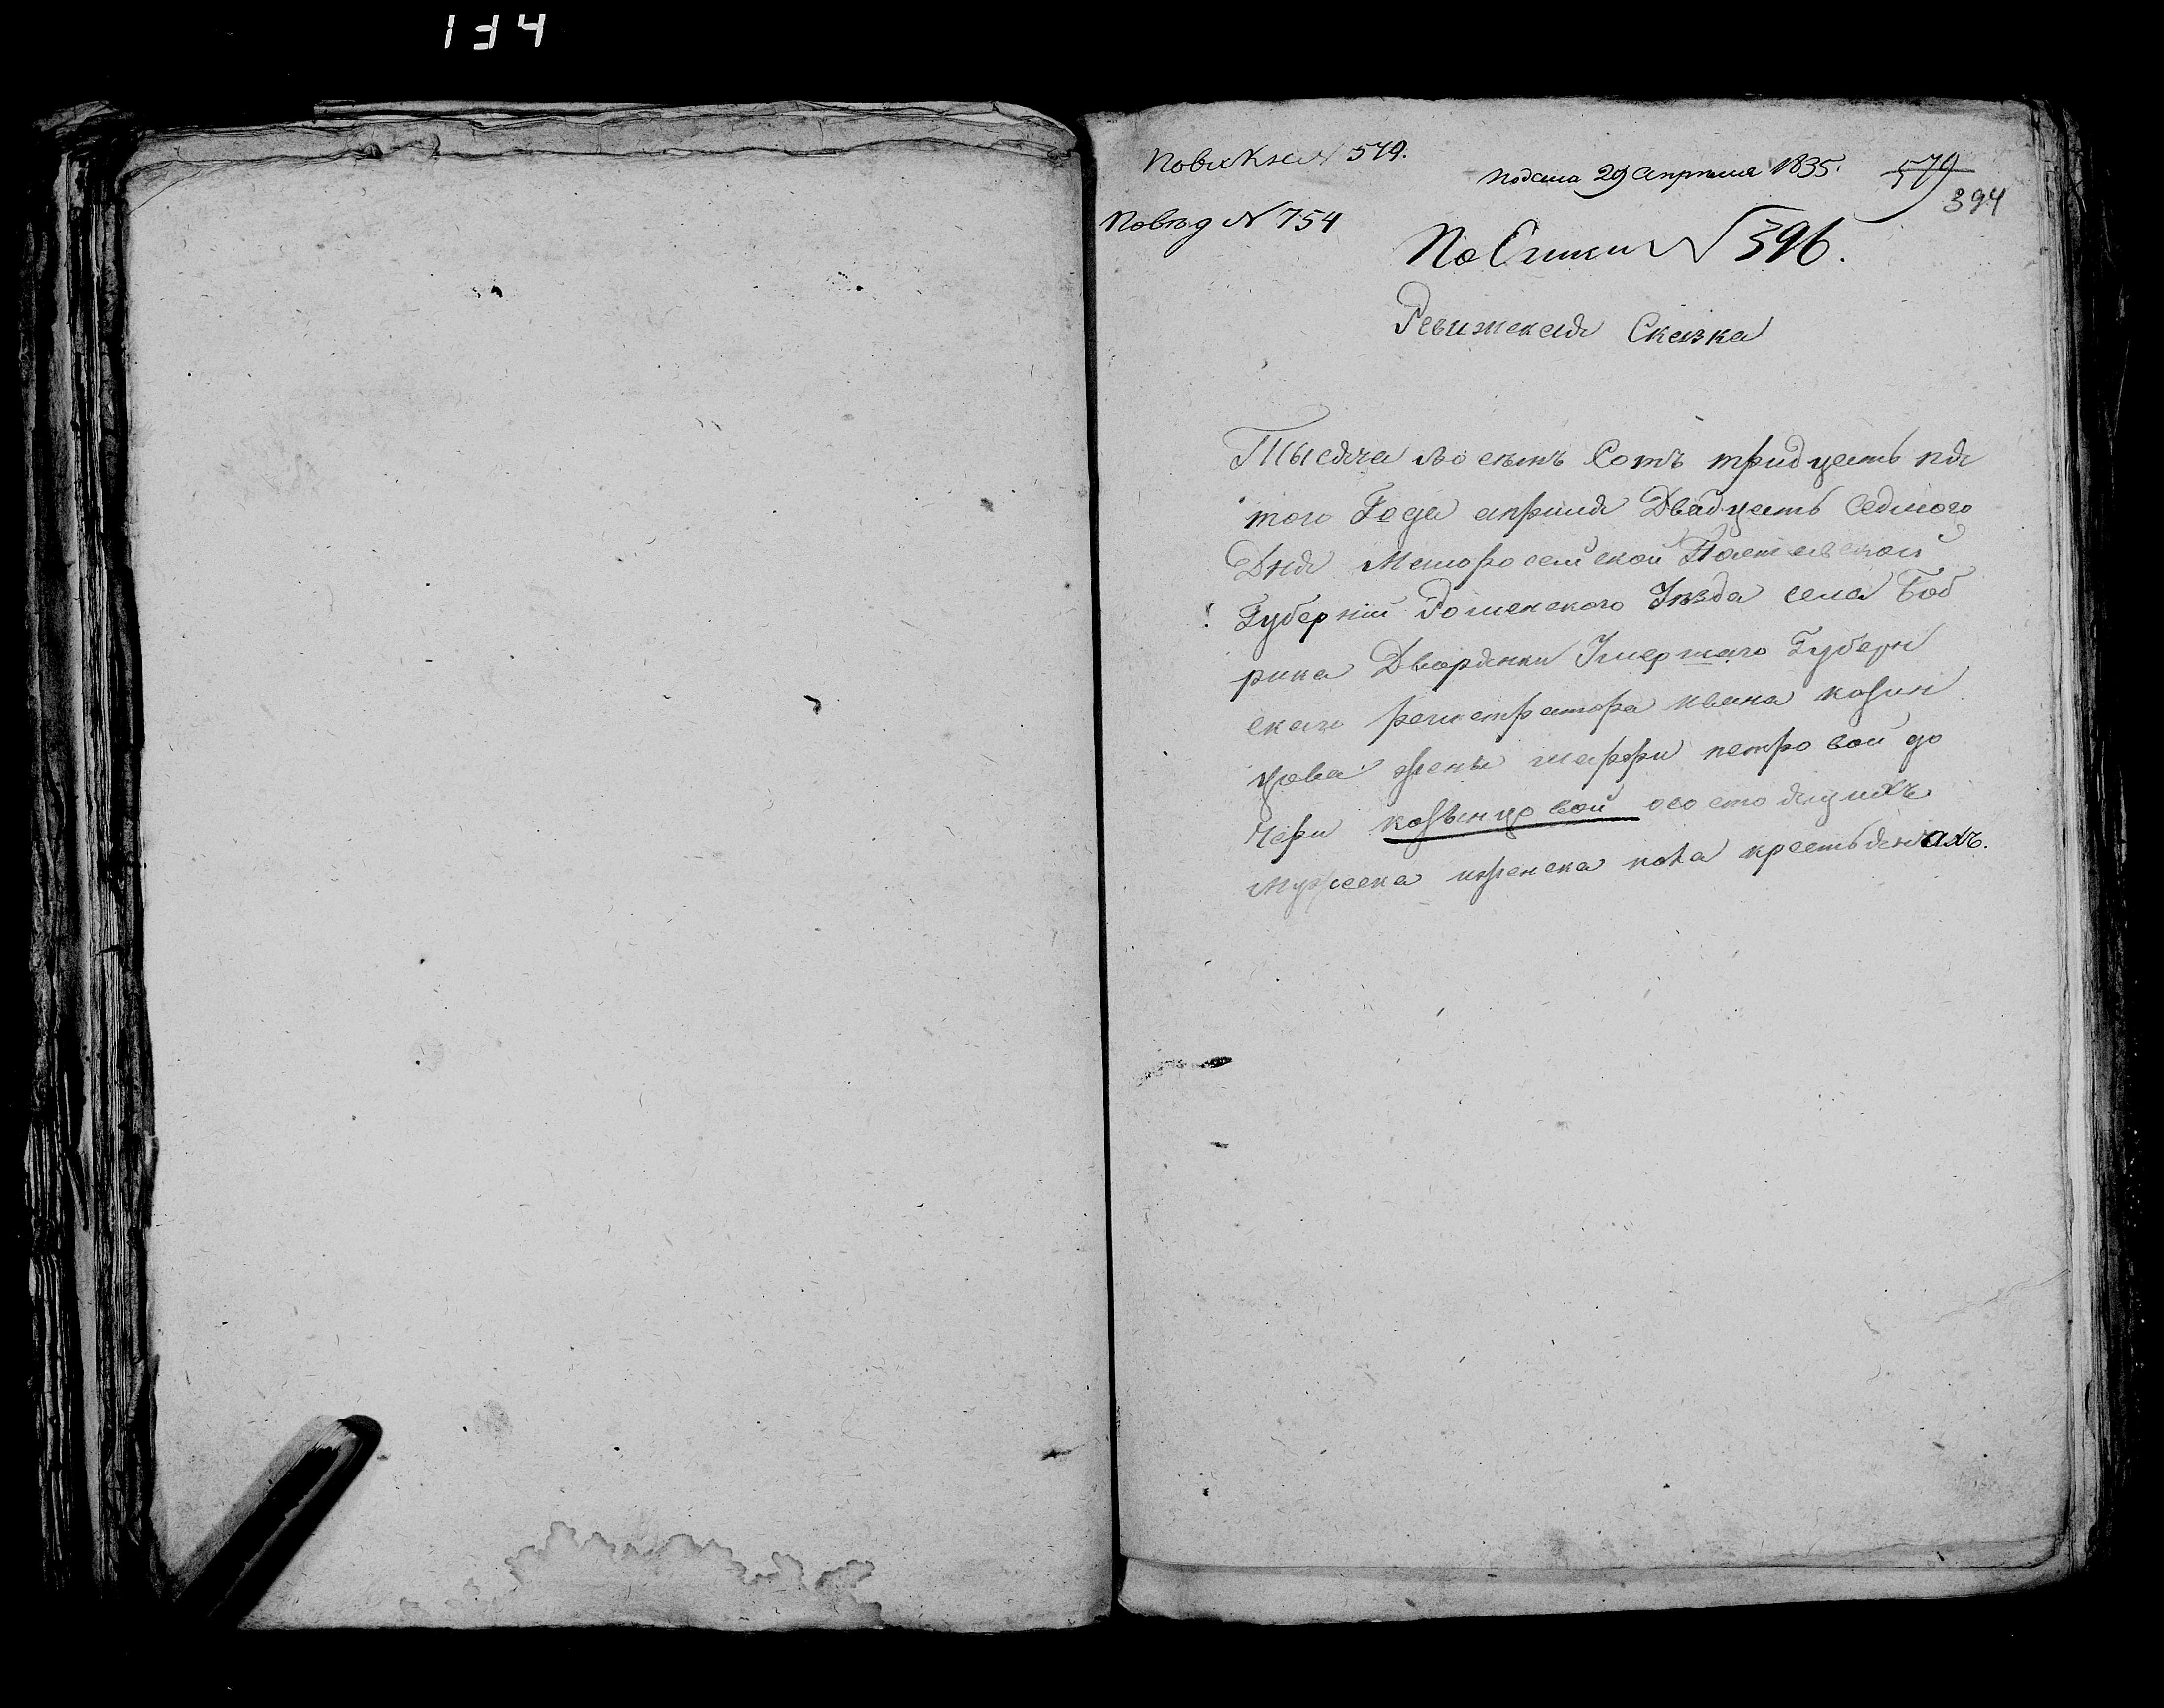 134
По вх Кни № 579.
подана 29 Апреля 1835.
579
394
По вѣд № 754
По Списки № 396.
Ревижская Сказка
Тысяча восемъ Сотъ тридцать пя
того Года априля Двадцать Седмого
Дня Малоросейской Полтавской
Губерніи Роменского Уѣзда села Боб
рика Дворянки Умершаго Губерн
скаго регистратора ивана козин
цова жены марфи петровой до
чери козѣнцовой осостоящихъ
мужеска иженска пола крестьянахъ.